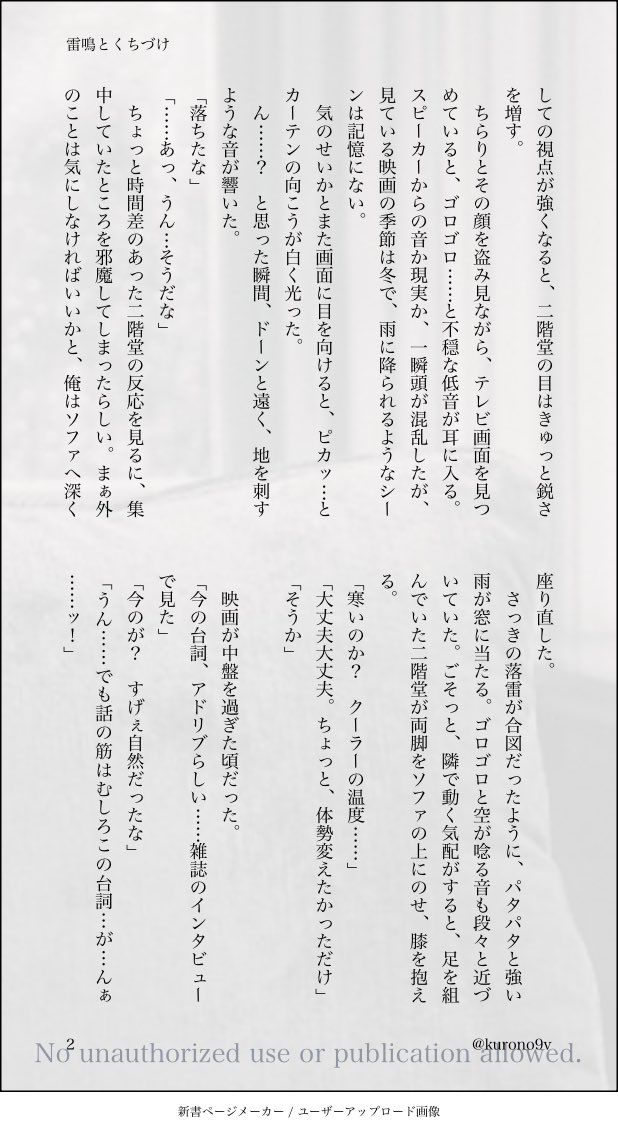 雷鳴とくちづけ
しての視点が強くなると、二階堂の目はきゅっと鋭さ
を増す。
　ちらりとその顔を盗み見ながら、テレビ画面を見つ
めていると、ゴロゴロ……と不穏な低音が耳に入る。
スピーカーからの音か現実か、一瞬頭が混乱したが、
見ている映画の季節は冬で、雨に降られるようなシー
ンは記憶にない。
　気のせいかとまた画面に目を向けると、ピカッ…と
カーテンの向こうが白く光った。
　ん……？　と思った瞬間、ドーンと遠く、地を刺す
ような音が響いた。
「落ちたな」
「……あっ、うん…そうだな」
　ちょっと時間差のあった二階堂の反応を見るに、集
中していたところを邪魔してしまったらしい。まぁ外
のことは気にしなければいいかと、俺はソファへ深く
座り直した。
　さっきの落雷が合図だったように、パタパタと強い
雨が窓に当たる。ゴロゴロと空が唸る音も段々と近づ
いていた。ごそっと、隣で動く気配がすると、足を組
んでいた二階堂が両脚をソファの上にのせ、膝を抱え
る。
「寒いのか？　クーラーの温度……」
「大丈夫大丈夫。ちょっと、体勢変えたかっただけ」
「そうか」
　映画が中盤を過ぎた頃だった。
「今の台詞、アドリブらしい……雑誌のインタビュー
で見た」
「今のが？　すげぇ自然だったな」
「うん……でも話の筋はむしろこの台詞…が…んぁ
……ッ！」
2
@kurono9v
No unauthorized use or publication allowed.
新書ページメーカー / ユーザーアップロード画像